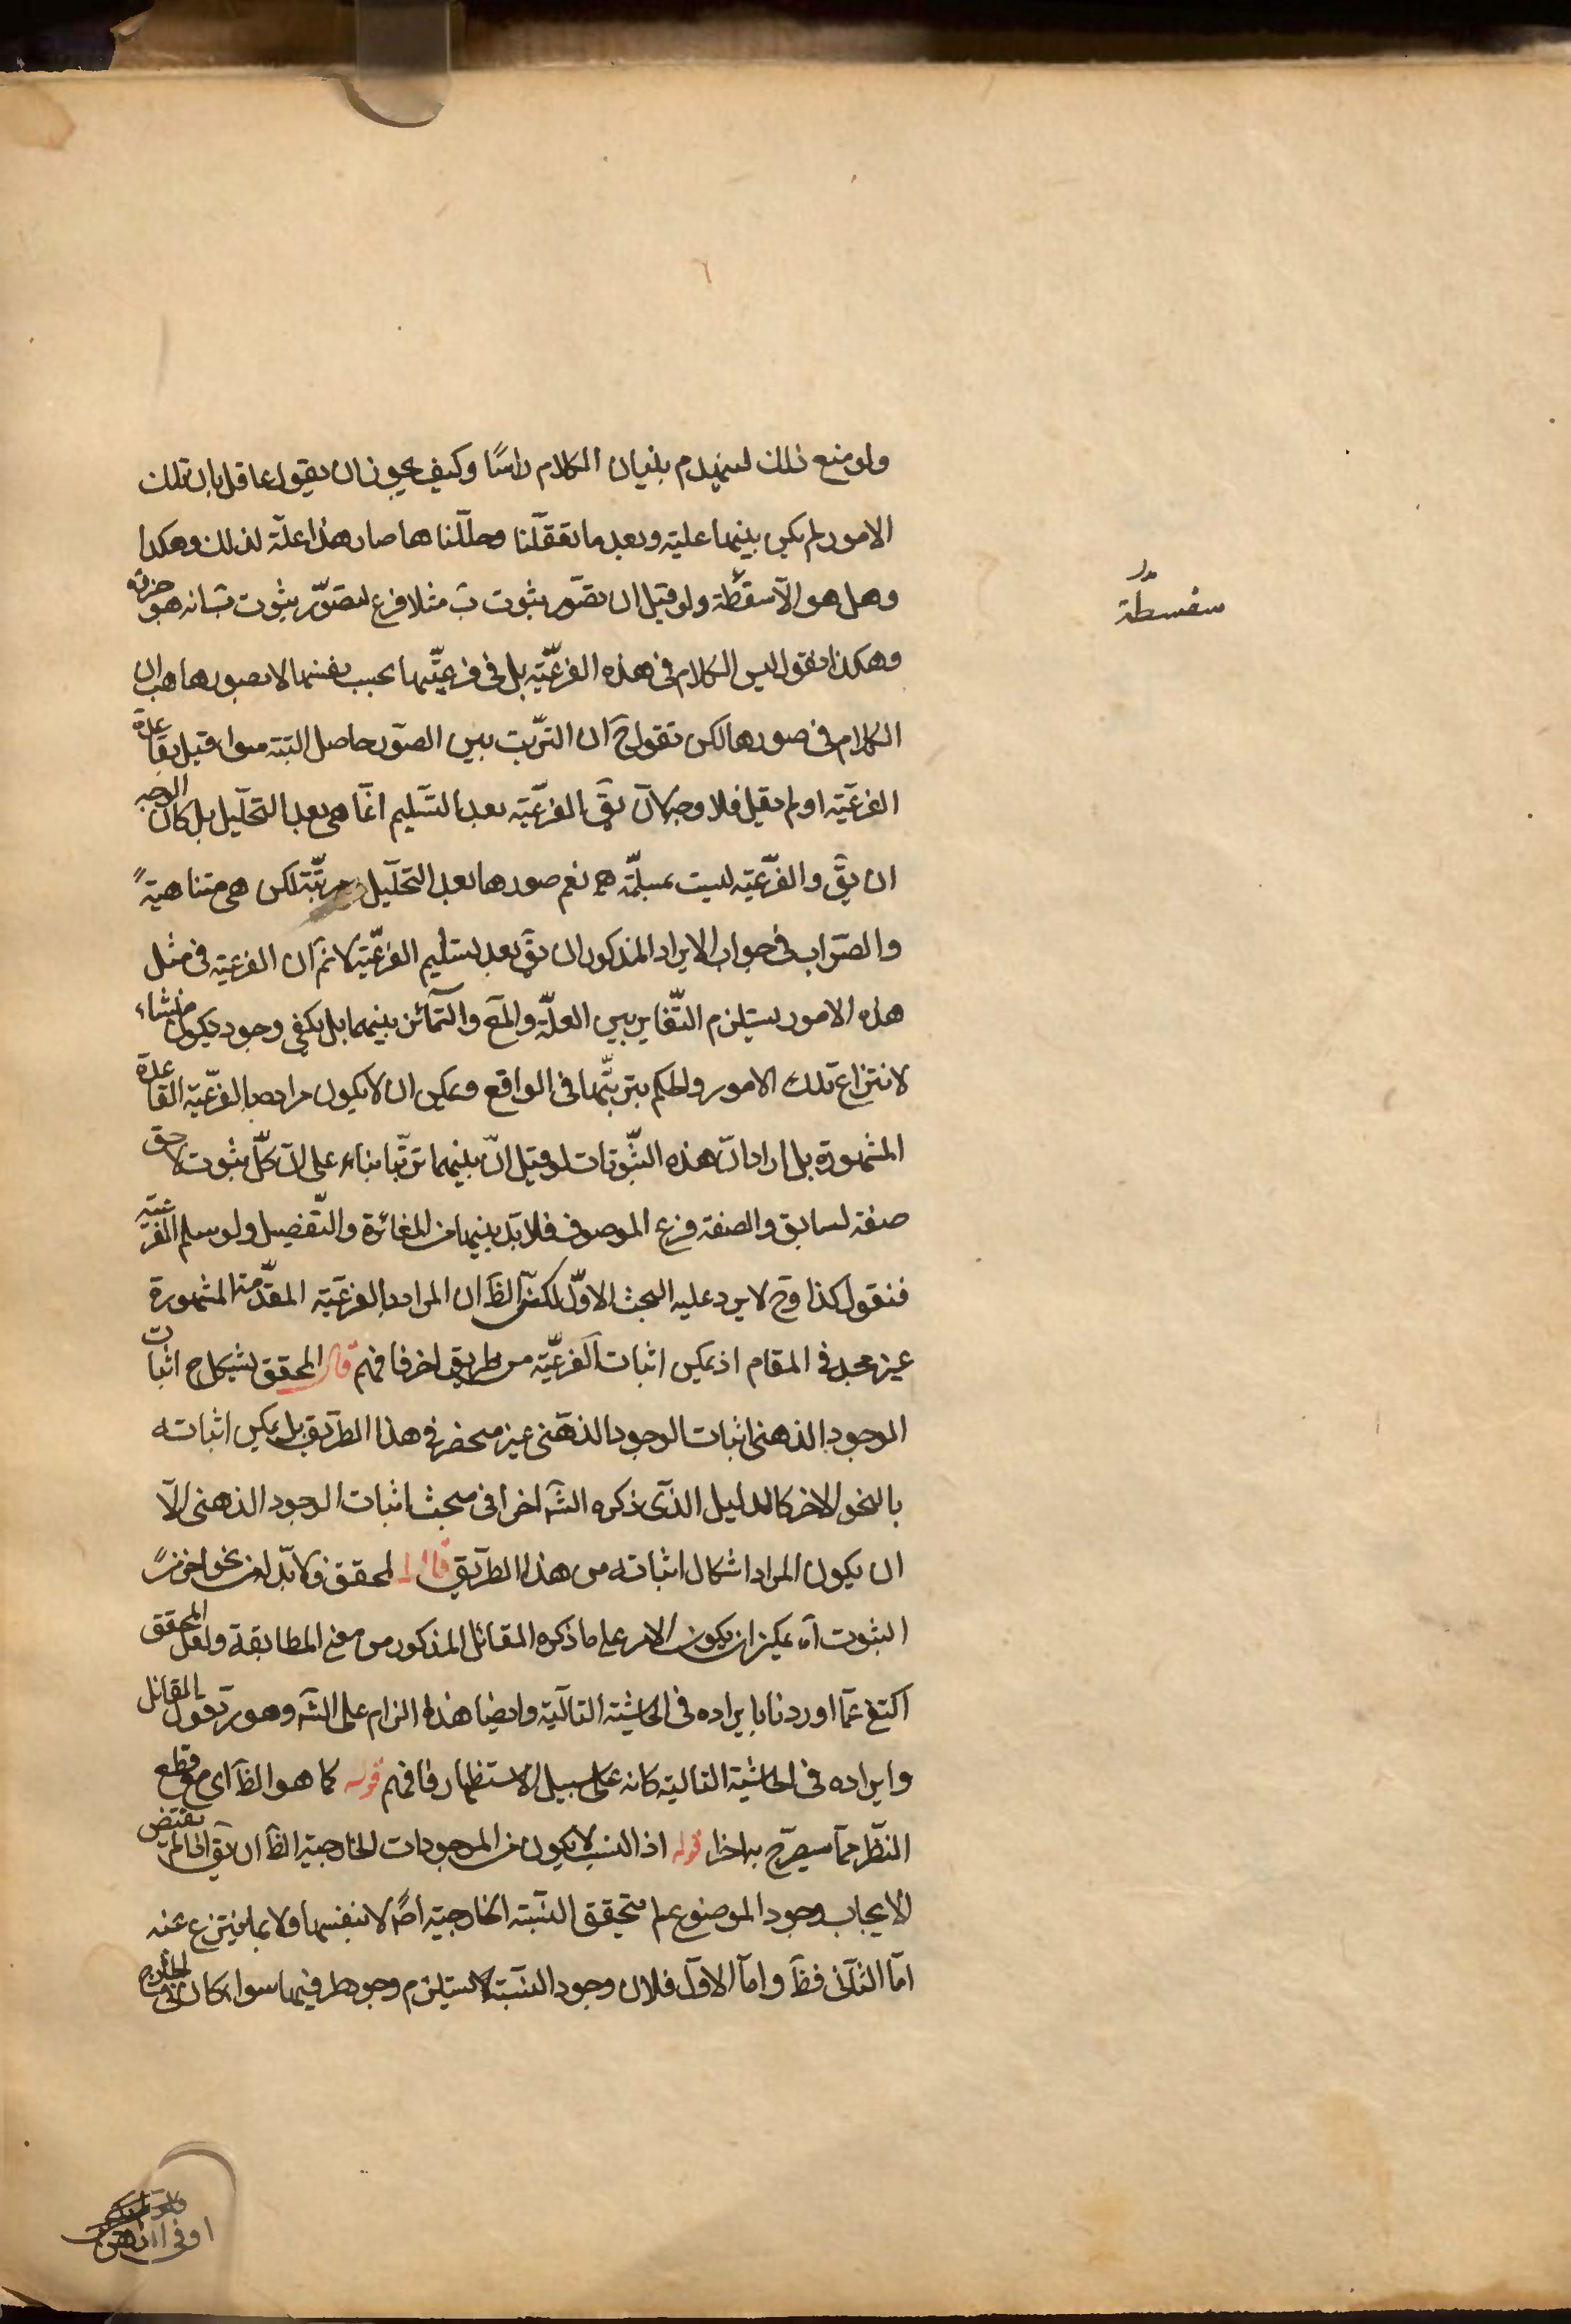 ولو منع ذلك لينهدم بنيان الكلام راسًا وكيف يجوز ان يقول عاقل بان تلك
الامور لم يكن بينها علية وبعد ما تعقلنا وحللناها صار هذا علّة لذلك وهكذا
وهل هو الّا سقطة ولو قيل ان تصور ثبوت ب مثلا فرع لتصوّر ثبوت ب انه هو جزئه
سفسطة
وهكذا نقول ليس الكلام في هذه الفرعيّة بل في فرعيّتها بحسب نفسها لا تصورها هب ان
الكلام في صورها لكن نقول ح ان الترتب بين الصور حاصل البتة سواء قيل بقاعدة
الفرعيّة او لم يقل فلا وجه لان يق الفرعيّة بعد التسليم انما هي بعد التحليل بل كان الوجه
ان يق والفرعيّة ليست بمسلّمة نعم صورها بعد التحليل مرتّبة لكن هي متناهيةً
والصواب في جواب الايراد المذكور ان يق بعد تسليم الفرعيّة لانم ان الفرعية في مثل
هذه الامور يستلزم التّغاير بين العلّة والمع والتمائز بينهما بل يكفي وجود يكون منشاء
لانتزاع تلك الامور والحكم بترتّبها في الواقع ويمكن ان لا يكون مراده بالفرعيّة القاعدة
المشهورة بل اراد ان هذه الثّبوتات لو قيل انّ بينهما ترتّبا بناء على ان كلّ ثبوت لاحق
صفة لسابق والصفة فرع الموصوف فلا بد بينها من المغائرة والتّفصيل ولو سلم الفرعيّة
فنقول كذا وح لا يرد عليه البحث الاوّل لكن الظ ان المراد بالفرعيّة المقدّمة المشهورة
غير مجد في المقام اذ يمكن اثبات الفرعيّة من طريق اخر فافهم قال المحقق يشكل ح اثبات
الوجود الذهني اثبات الوجود الذهني غير منحصر في هذا الطريق بل يمكن اثباته
بالنحو الاخر كالدليل الذي ذكره الش اخرا في مبحث اثبات الوجود الذهني الّا
ان يكون المراد اشكال اثباته من هذا الطريق قال المحقق ولا بدّ لها نحو اخر من
الثبوت اه يمكن ان يكون الامر على ما ذكره القائل المذكور من معنى المطابقة ولعل المحقق
اكتفى عما اوردنا بايراده في الحاشية التالية وايضا هذا الزام على الش وهو يقول بالمقائل
وايراده في الحاشية التالية كانه على سبيل الاستظهار فافهم قوله كما هو الظ اى مع قطع
النظر مما سيصرّح به اخرا قوله اذ النسب لا يكون من الموجودات الخارجية الظ ان يق لما لم يقتض
الايجاب وجود الموضوع لم يتحقق النسبة الخارجية اصلا لا بنفسها ولا بما ينتزع عنه
امّا الثاني فظ وامّا الاول فلان وجود النسبة يستلزم وجود طرفيها سواء كان في الخارج
او في الذهن